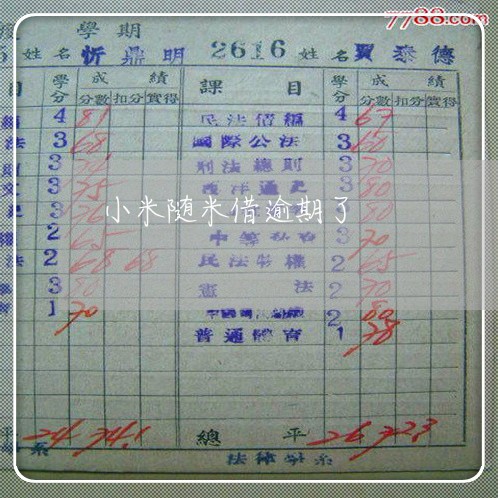 7788.com
學期
姓名 忻鼎明 2616 姓名 賈泰德
目 學分 成績 課目 學分 成績
分數 扣分 實得 分數 扣分 實得
4 81 民法債編 4 67
法 3 68 國際公法 3 60
3 刑法總則 3 70
3 75 西洋通史 3 80
3 80
小米随米借逾期了
2 65 3 70
法 2 68 68 民法物權 2 65
3 80 憲法 2 70
1 70 2 80
普通體育 1 78
平 24 74.1 總平 26 72.3
系 法律學系